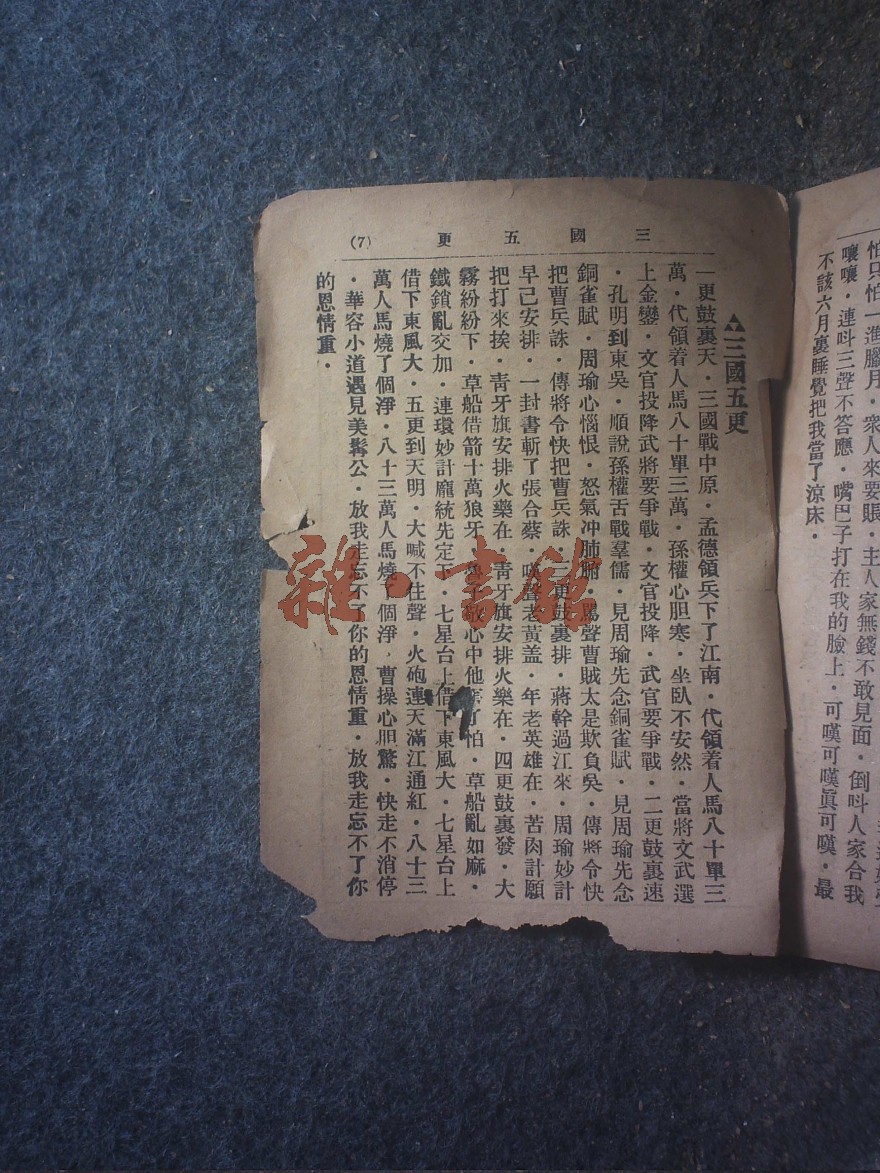 怕只怕一進臘月・衆人來要賬・主人家無錢不敢見面・倒呌人家合我
嚷嚷・連呌三聲不答應・嘴巴子打在我的臉上・可嘆可嘆眞可嘆・最
不該六月裏睡覺把我當了凉床・
三國五更
(7)
▲三國五更
一更鼓裏天・三國戰中原・孟德領兵下了江南・代領着人馬八十單三
萬・代領着人馬八十單三萬・孫權心胆寒・坐臥不安然・當將文武選
上金鑾・文官投降武將要爭戰・文官投降・武官要爭戰・二更鼓裏速
・孔明到東吳・順說孫權舌戰羣儒・見周瑜先念銅雀賦・見周瑜先念
銅雀賦・周瑜心惱恨・怒氣冲肺腑・罵聲曹賊太是欺負吳・傳將令快
把曹兵誅・傳將令快把曹兵誅・三更鼓裏排・蔣幹過江來・周瑜妙計
早己安排・一封書斬了張合蔡・嘆聲老黃盖・年老英雄在・苦肉計願
把打來挨・靑牙旗安排火藥在・靑牙旗安排火樂在・四更鼓裏發・大
霧紛紛下・草船借箭十萬狼牙・魯子敬心中他害了怕・草船亂如麻・
鐵鎖亂交加・連環妙計龐統先定下・七星台上借下東風大・七星台上
借下東風大・五更到天明・大喊不住聲・火砲連天滿江通紅・八十三
萬人馬燒了個淨・八十三萬人馬燒了個淨・曹操心胆驚・快走不消停
・華容小道遇見美髯公・放我走忘不了你的恩情重・放我走忘不了你
的恩情重・
雜・書館